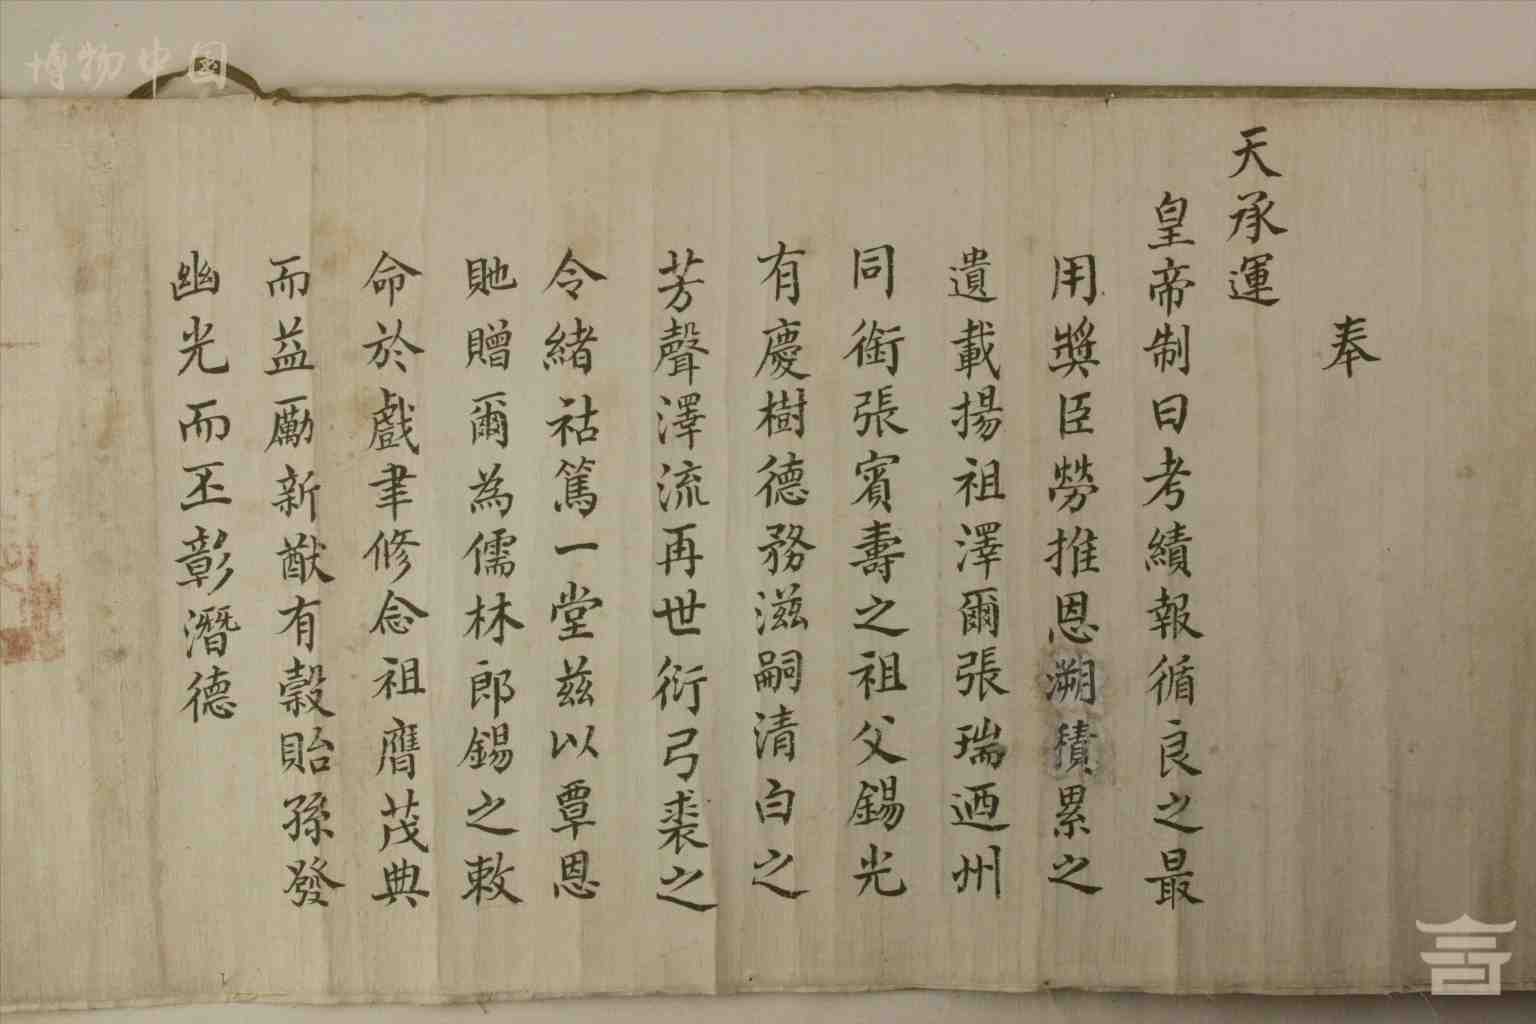 博物中国
奉
天承運
皇帝制曰考績報循良之最
用獎臣勞推恩溯積累之
遺載揚祖澤爾張瑞迺州
同銜張賓壽之祖父錫光
有慶樹德務滋嗣清白之
芳聲澤流再世衍弓裘之
令緒祜篤一堂茲以覃恩
貤贈爾為儒林郎錫之敕
命於戲聿修念祖膺茂典
而益勵新猷有穀貽孫發
幽光而丕彰潛德